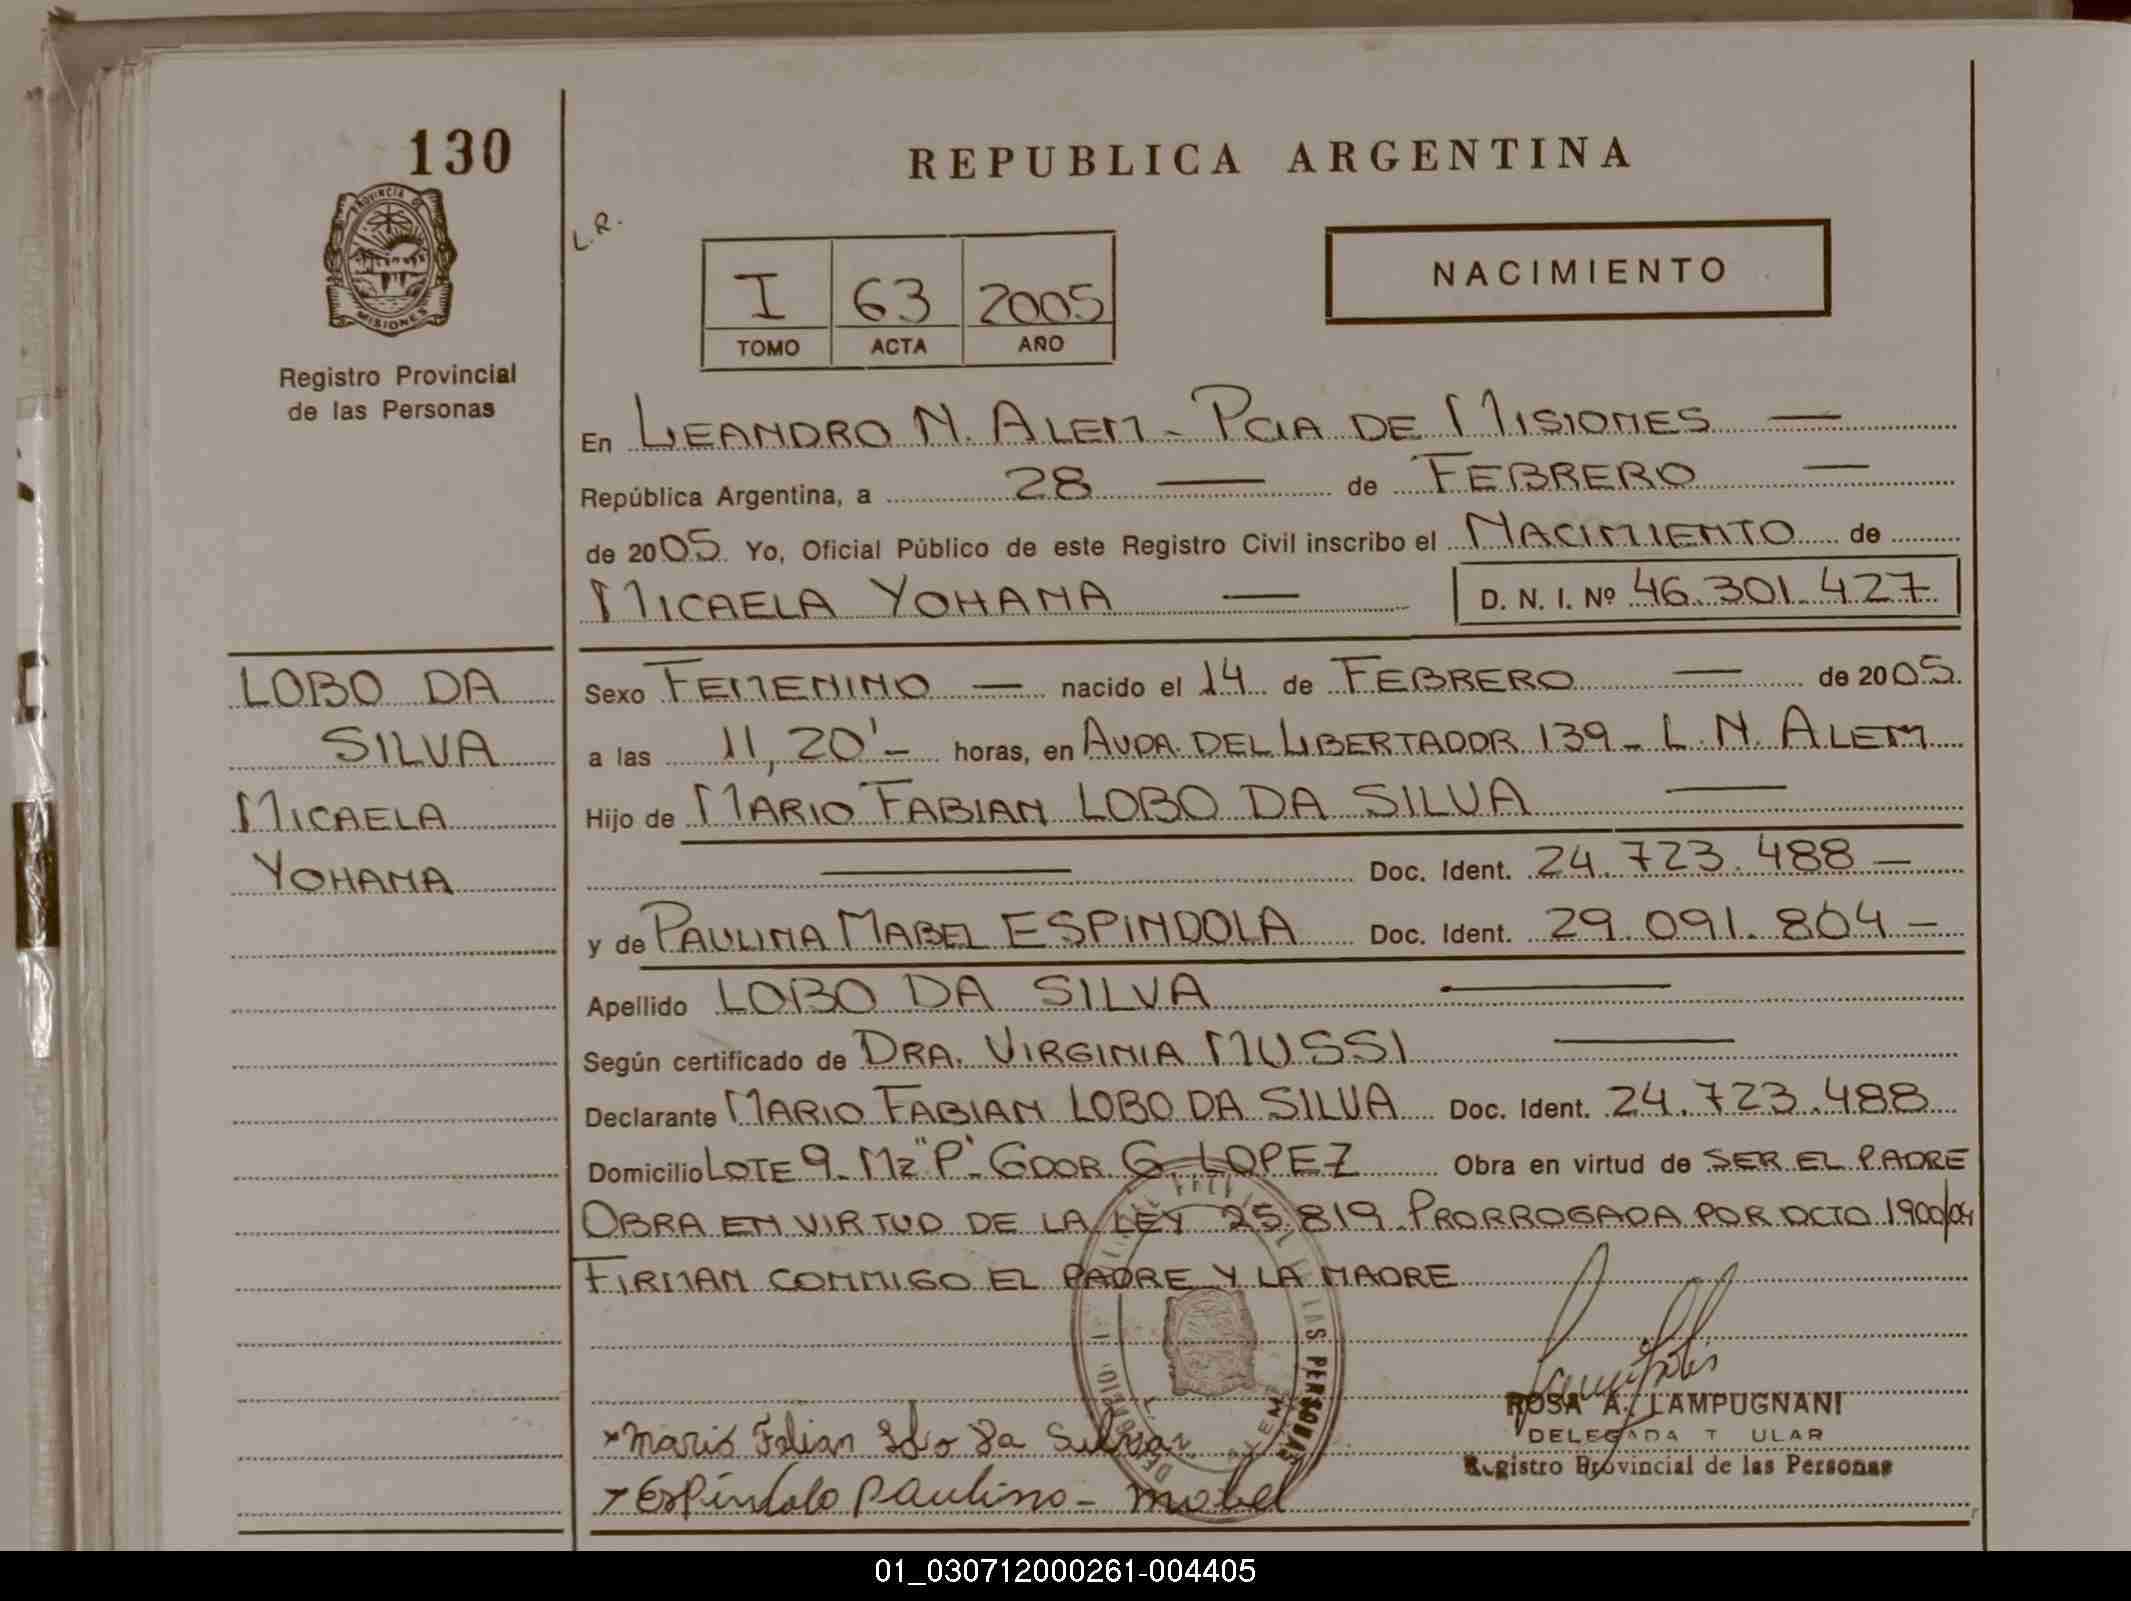 130
REPUBLICA ARGENTINA
PROVINCIA DE
MISIONES
L.R.
I 63 2005
TOMO ACTA AÑO
NACIMIENTO
Registro Provincial
de las Personas
En LEANDRO N. ALEM - PCIA DE MISIONES
República Argentina, a 28 de FEBRERO
de 2005. Yo, Oficial Público de este Registro Civil inscribo el NACIMIENTO de
MICAELA YOHANA D. N. I. Nº 46.301.427
LOBO DA
SILVA
MICAELA
YOHANA
Sexo FEMENINO nacido el 14 de FEBRERO de 2005.
a las 11,20'- horas, en AVDA. DEL LIBERTADOR 139 - L. N. ALEM
Hijo de MARIO FABIAN LOBO DA SILVA
Doc. Ident. 24.723.488
y de PAULINA MABEL ESPINDOLA Doc. Ident. 29.091.804
Apellido LOBO DA SILVA
Según certificado de DRA. VIRGINIA MUSSI
Declarante MARIO FABIAN LOBO DA SILVA Doc. Ident. 24.723.488
Domicilio LOTE 9 - MZ "P" - GDOR G. LOPEZ Obra en virtud de SER EL PADRE
OBRA EN VIRTUD DE LA LEY 25.819 PRORROGADA POR DCTO 1900/04
FIRMAN CONMIGO EL PADRE Y LA MADRE
LAS PERSONAS
Mario Fabian Lobo Da Silva
Espindola Paulina - Mabel
ROSA A. LAMPUGNANI
DELEGADA T ULAR
Registro Provincial de las Personas
01_030712000261-004405